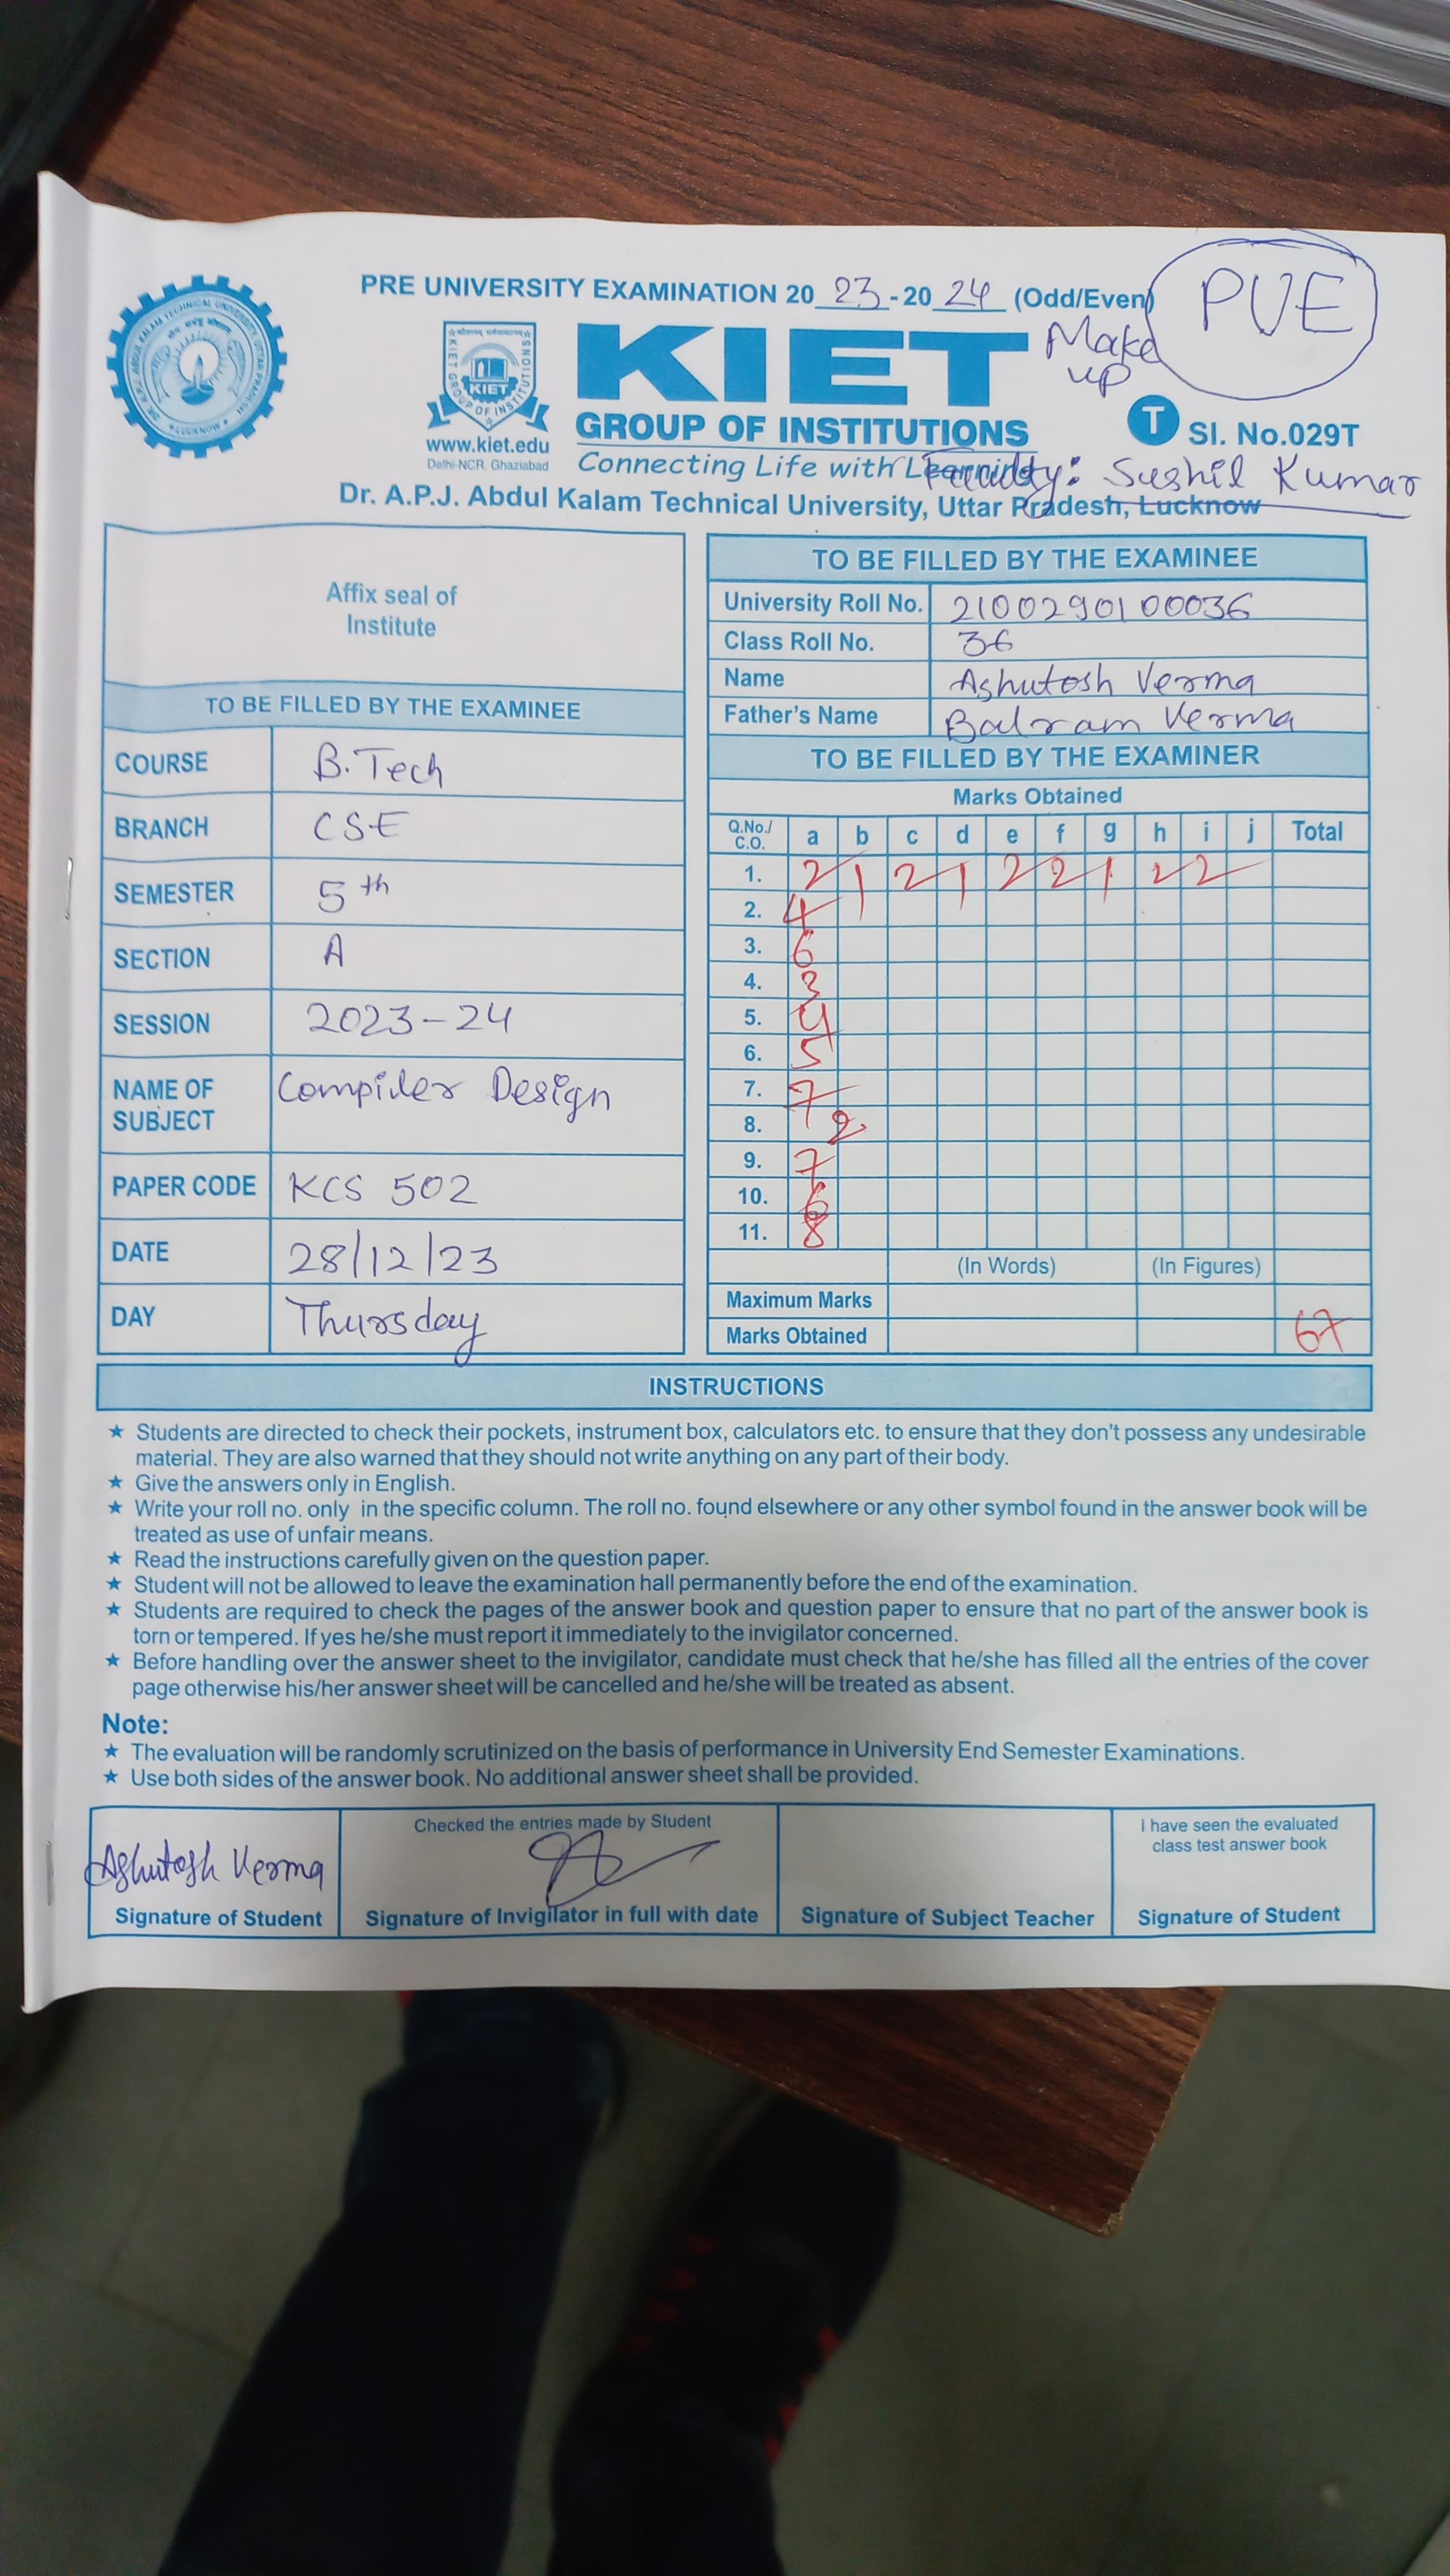 PRE UNIVERSITY EXAMINATION 20 23 - 20 24 (Odd/Even)
PUE
Make up
KIET
GROUP OF INSTITUTIONS
Connecting Life with Learning
www.kiet.edu
Delhi-NCR, Ghaziabad
T Sl. No.029T
Faculty: Sushil Kumar
Dr. A.P.J. Abdul Kalam Technical University, Uttar Pradesh, Lucknow
Affix seal of
Institute
TO BE FILLED BY THE EXAMINEE
COURSE B.Tech
BRANCH CSE
SEMESTER 5th
SECTION A
SESSION 2023-24
NAME OF SUBJECT Compiler Design
PAPER CODE KCS 502
DATE 28/12/23
DAY Thursday
TO BE FILLED BY THE EXAMINEE
University Roll No. 2100290100036
Class Roll No. 36
Name Ashutosh Verma
Father's Name Balram Verma
TO BE FILLED BY THE EXAMINER
Marks Obtained
Q.No./ C.O. a b c d e f g h i j Total
1. 2 1 2 1 2 2 1 2 2
2. 4
3. 6
4. 3
5. 4
6. 5
7. 7
8. 2
9. 7
10. 6
11. 8
(In Words) (In Figures)
Maximum Marks
Marks Obtained 67
INSTRUCTIONS
★ Students are directed to check their pockets, instrument box, calculators etc. to ensure that they don't possess any undesirable
material. They are also warned that they should not write anything on any part of their body.
★ Give the answers only in English.
★ Write your roll no. only in the specific column. The roll no. found elsewhere or any other symbol found in the answer book will be
treated as use of unfair means.
★ Read the instructions carefully given on the question paper.
★ Student will not be allowed to leave the examination hall permanently before the end of the examination.
★ Students are required to check the pages of the answer book and question paper to ensure that no part of the answer book is
torn or tempered. If yes he/she must report it immediately to the invigilator concerned.
★ Before handling over the answer sheet to the invigilator, candidate must check that he/she has filled all the entries of the cover
page otherwise his/her answer sheet will be cancelled and he/she will be treated as absent.
Note:
★ The evaluation will be randomly scrutinized on the basis of performance in University End Semester Examinations.
★ Use both sides of the answer book. No additional answer sheet shall be provided.
Ashutosh Verma
Signature of Student
Checked the entries made by Student
Signature of Invigilator in full with date
Signature of Subject Teacher
I have seen the evaluated
class test answer book
Signature of Student